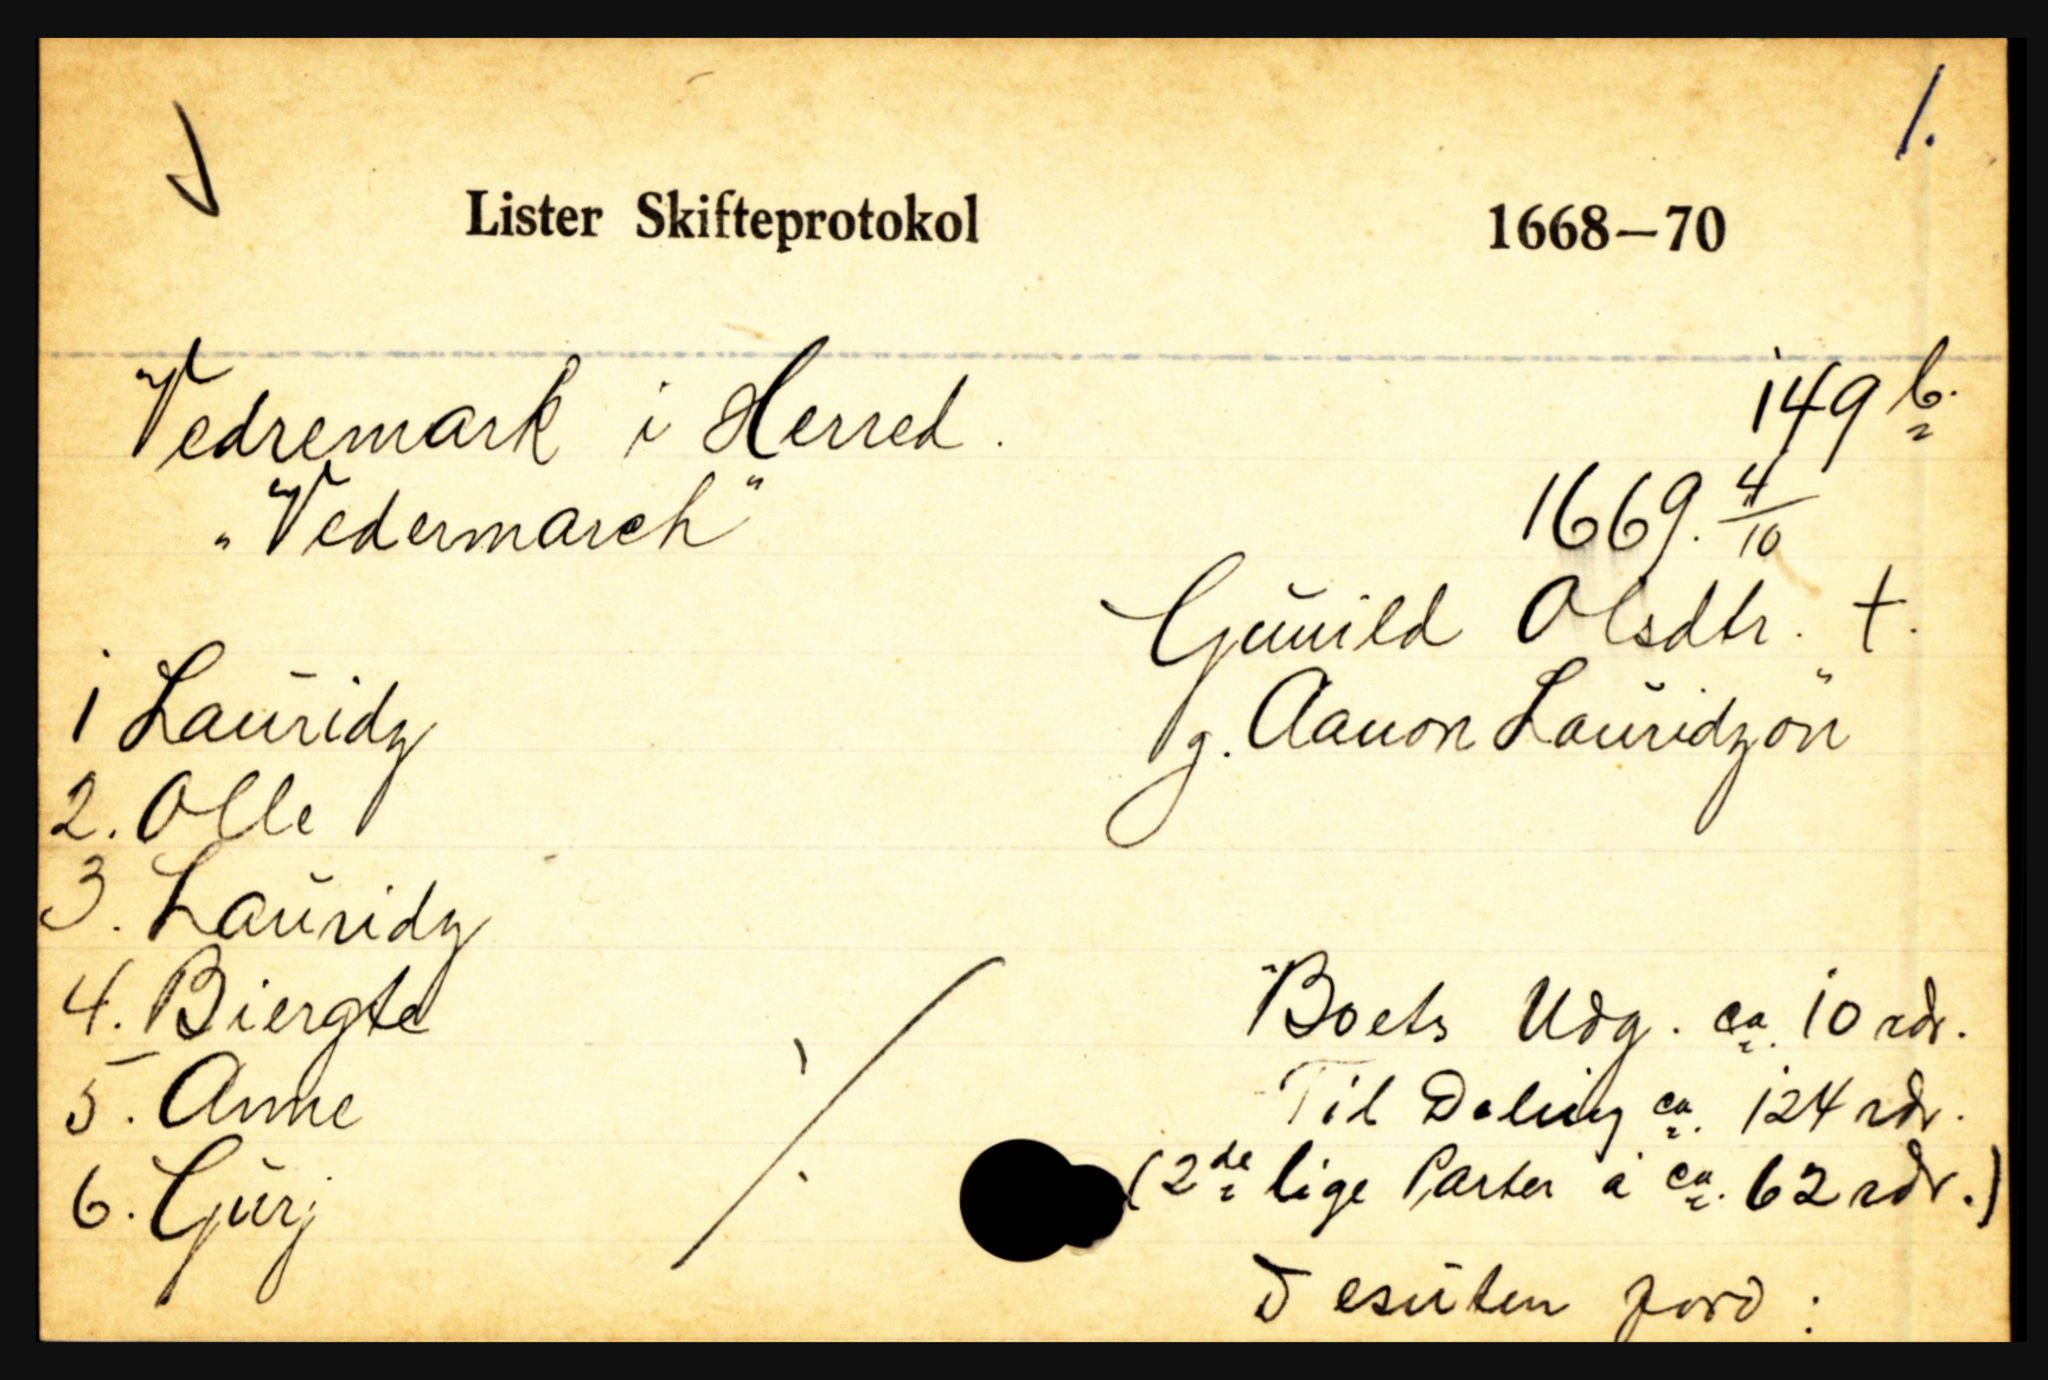 1.
Lister Skifteprotokol 1668—70
Vedremark i Herred. 149 b.
„Vedermarch" 1669. 4/10
Gunild Olsdtr. †.
g. Aanon Lauridzön
1 Lauridz
2. Olle
3. Lauridz
4. Biergte
5. Anne
6. Gurj
Boets Udg. ca. 10 rdr.
Til Deling ca. 124 rdr.
(2de lige Parter à ca. 62 rdr.)
Desuten jord: